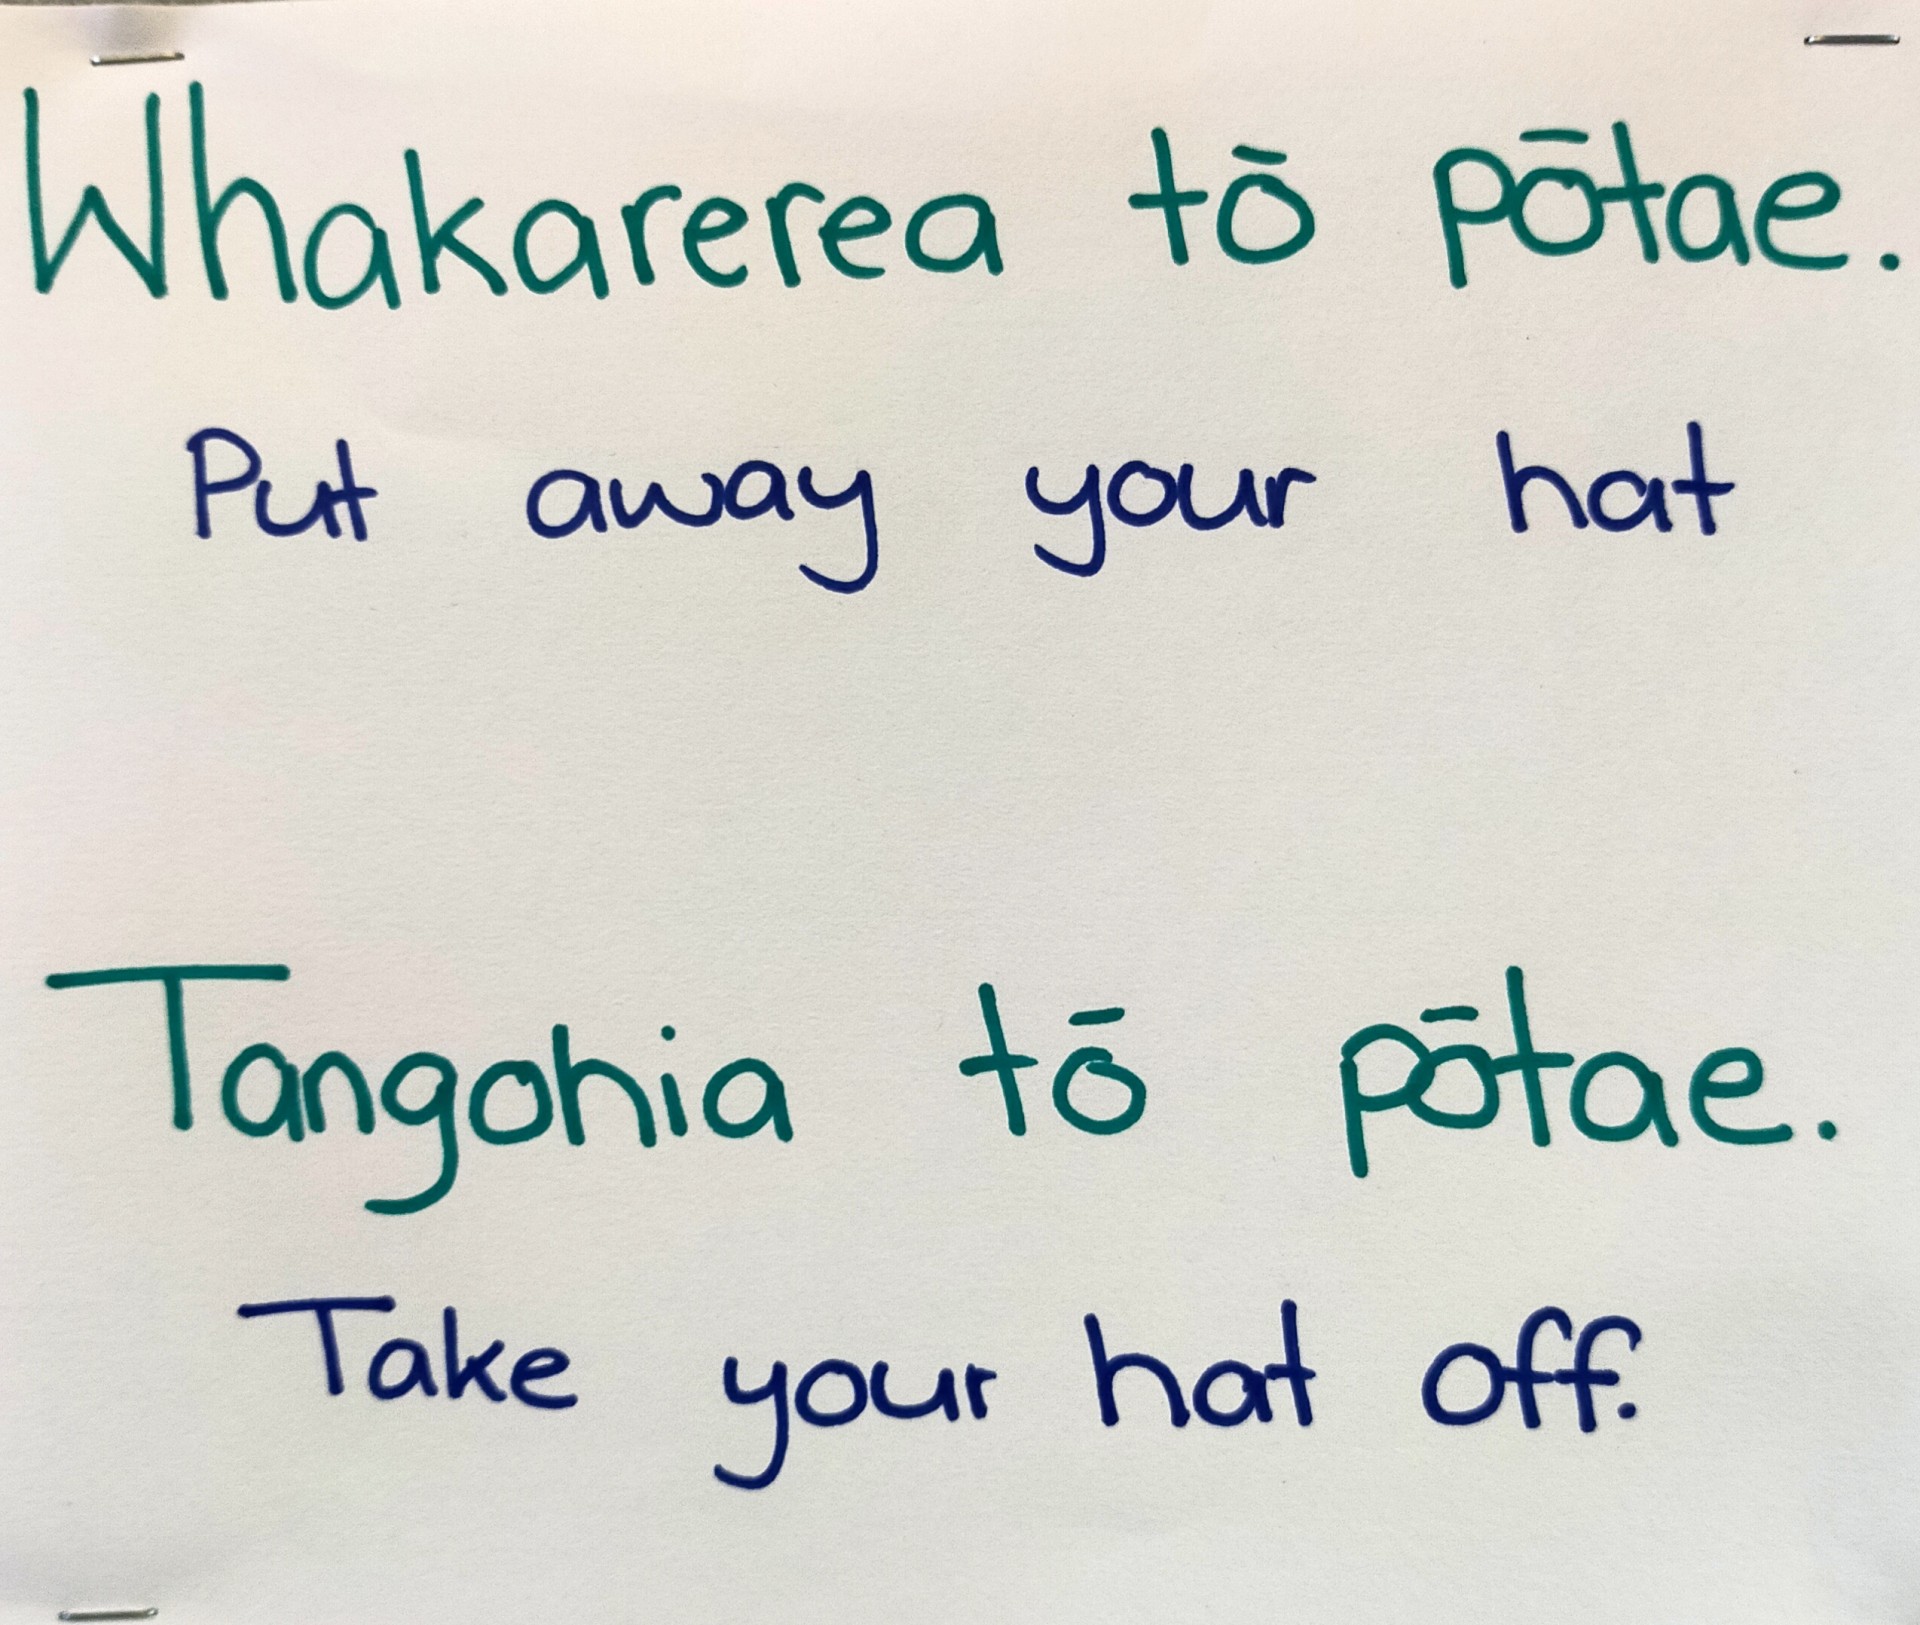 Whakarerea tō pōtae.
Put away your hat
Tangohia tō pōtae.
Take your hat off.